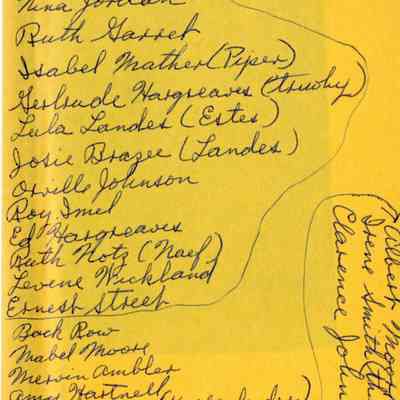 Nina Jordan
Ruth Garret
Isabel Mather (Piper)
Gertrude Hargreaves (Truohy)
Lula Landes (Estes)
Josie Brazee (Landes)
Orville Johnson
Roy Imel
Ed Hargreaves
Ruth Notz (Naef)
Levene Wickland
Ernest Street
Back Row
Mabel Moore
Mervin Ambler
Amy Hartnell
Albert
Irene Smith (
Clarence John